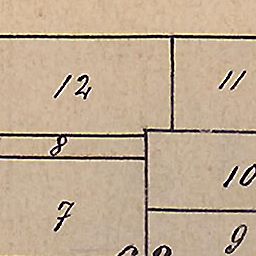 12
11
8
10
7
9